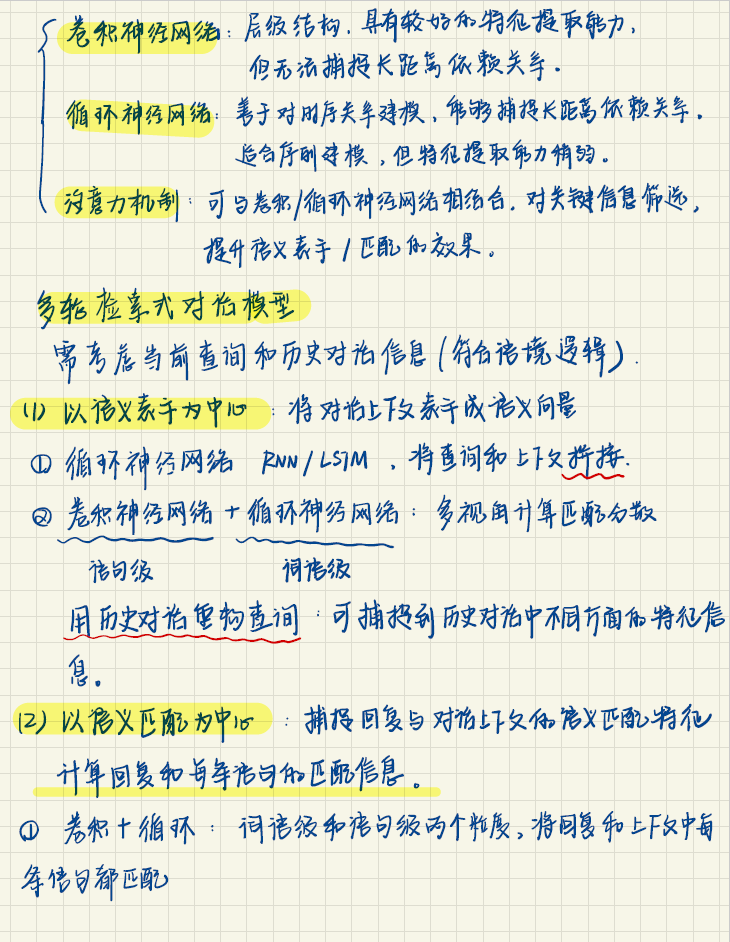 卷积神经网络：层级结构，具有较好的特征提取能力，
但无法捕捉长距离依赖关系。
循环神经网络：善于对时序关系建模，能够捕捉长距离依赖关系。
适合序列建模，但特征提取能力稍弱。
注意力机制：可与卷积/循环神经网络相结合，对关键信息筛选，
提升语义表示/匹配的效果。
多轮检索式对话模型
需考虑当前查询和历史对话信息(符合语境逻辑)．
(1) 以语义表示为中心：将对话上下文表示成语义向量
① 循环神经网络 RNN/LSTM，将查询和上下文拼接．
② 卷积神经网络+循环神经网络：多视角计算匹配分数
语句级 词语级
用历史对话重构查询：可捕捉到历史对话中不同方面的特征信
息。
(2) 以语义匹配为中心：捕捉回复与对话上下文的语义匹配特征
计算回复和每条语句的匹配信息。
① 卷积+循环：词语级和语句级两个粒度，将回复和上下文中每
条语句都匹配